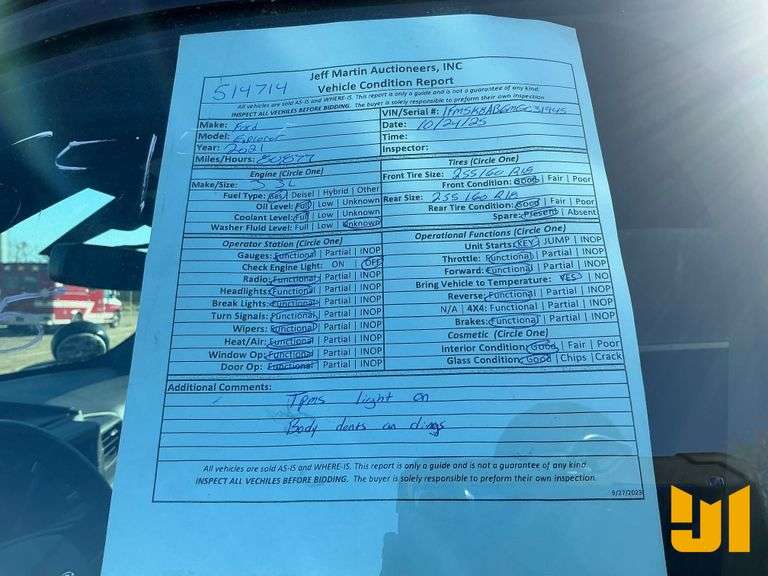 Jeff Martin Auctioneers, INC
514714
Vehicle Condition Report
All vehicles are sold AS-IS and WHERE-IS. This report is only a guide and is not a guarantee of any kind.
INSPECT ALL VECHILES BEFORE BIDDING. The buyer is solely responsible to preform their own inspection
Make: Ford
VIN/Serial #:
Model: Explorer
Date: 10/24/25
Year: 2021
Time:
Miles/Hours:
Inspector:
Engine (Circle One)
Tires (Circle One)
Make/Size: 3.3L
Front Tire Size: 255/60 R18
Fuel Type: Gas | Deisel | Hybrid | Other
Front Condition: Good | Fair | Poor
Oil Level: Full | Low | Unknown
Rear Size: 255/60 R18
Coolant Level: Full | Low | Unknown
Rear Tire Condition: Good | Fair | Poor
Washer Fluid Level: Full | Low | Unknown
Spare: Present | Absent
Operator Station (Circle One)
Operational Functions (Circle One)
Gauges: Functional | Partial | INOP
Unit Starts: KEY | JUMP | INOP
Check Engine Light: ON | OFF
Throttle: Functional | Partial | INOP
Radio: Functional | Partial | INOP
Forward: Functional | Partial | INOP
Headlights: Functional | Partial | INOP
Bring Vehicle to Temperature: YES | NO
Break Lights: Functional | Partial | INOP
Reverse: Functional | Partial | INOP
Turn Signals: Functional | Partial | INOP
N/A | 4X4: Functional | Partial | INOP
Wipers: Functional | Partial | INOP
Brakes: Functional | Partial | INOP
Heat/Air: Functional | Partial | INOP
Cosmetic (Circle One)
Window Op: Functional | Partial | INOP
Interior Condition: Good | Fair | Poor
Door Op: Functional | Partial | INOP
Glass Condition: Good | Chips | Crack
Additional Comments:
Tpms light on
Body dents an dings
All vehicles are sold AS-IS and WHERE-IS. This report is only a guide and is not a guarantee of any kind.
INSPECT ALL VECHILES BEFORE BIDDING. The buyer is solely responsible to preform their own inspection.
9/27/2023